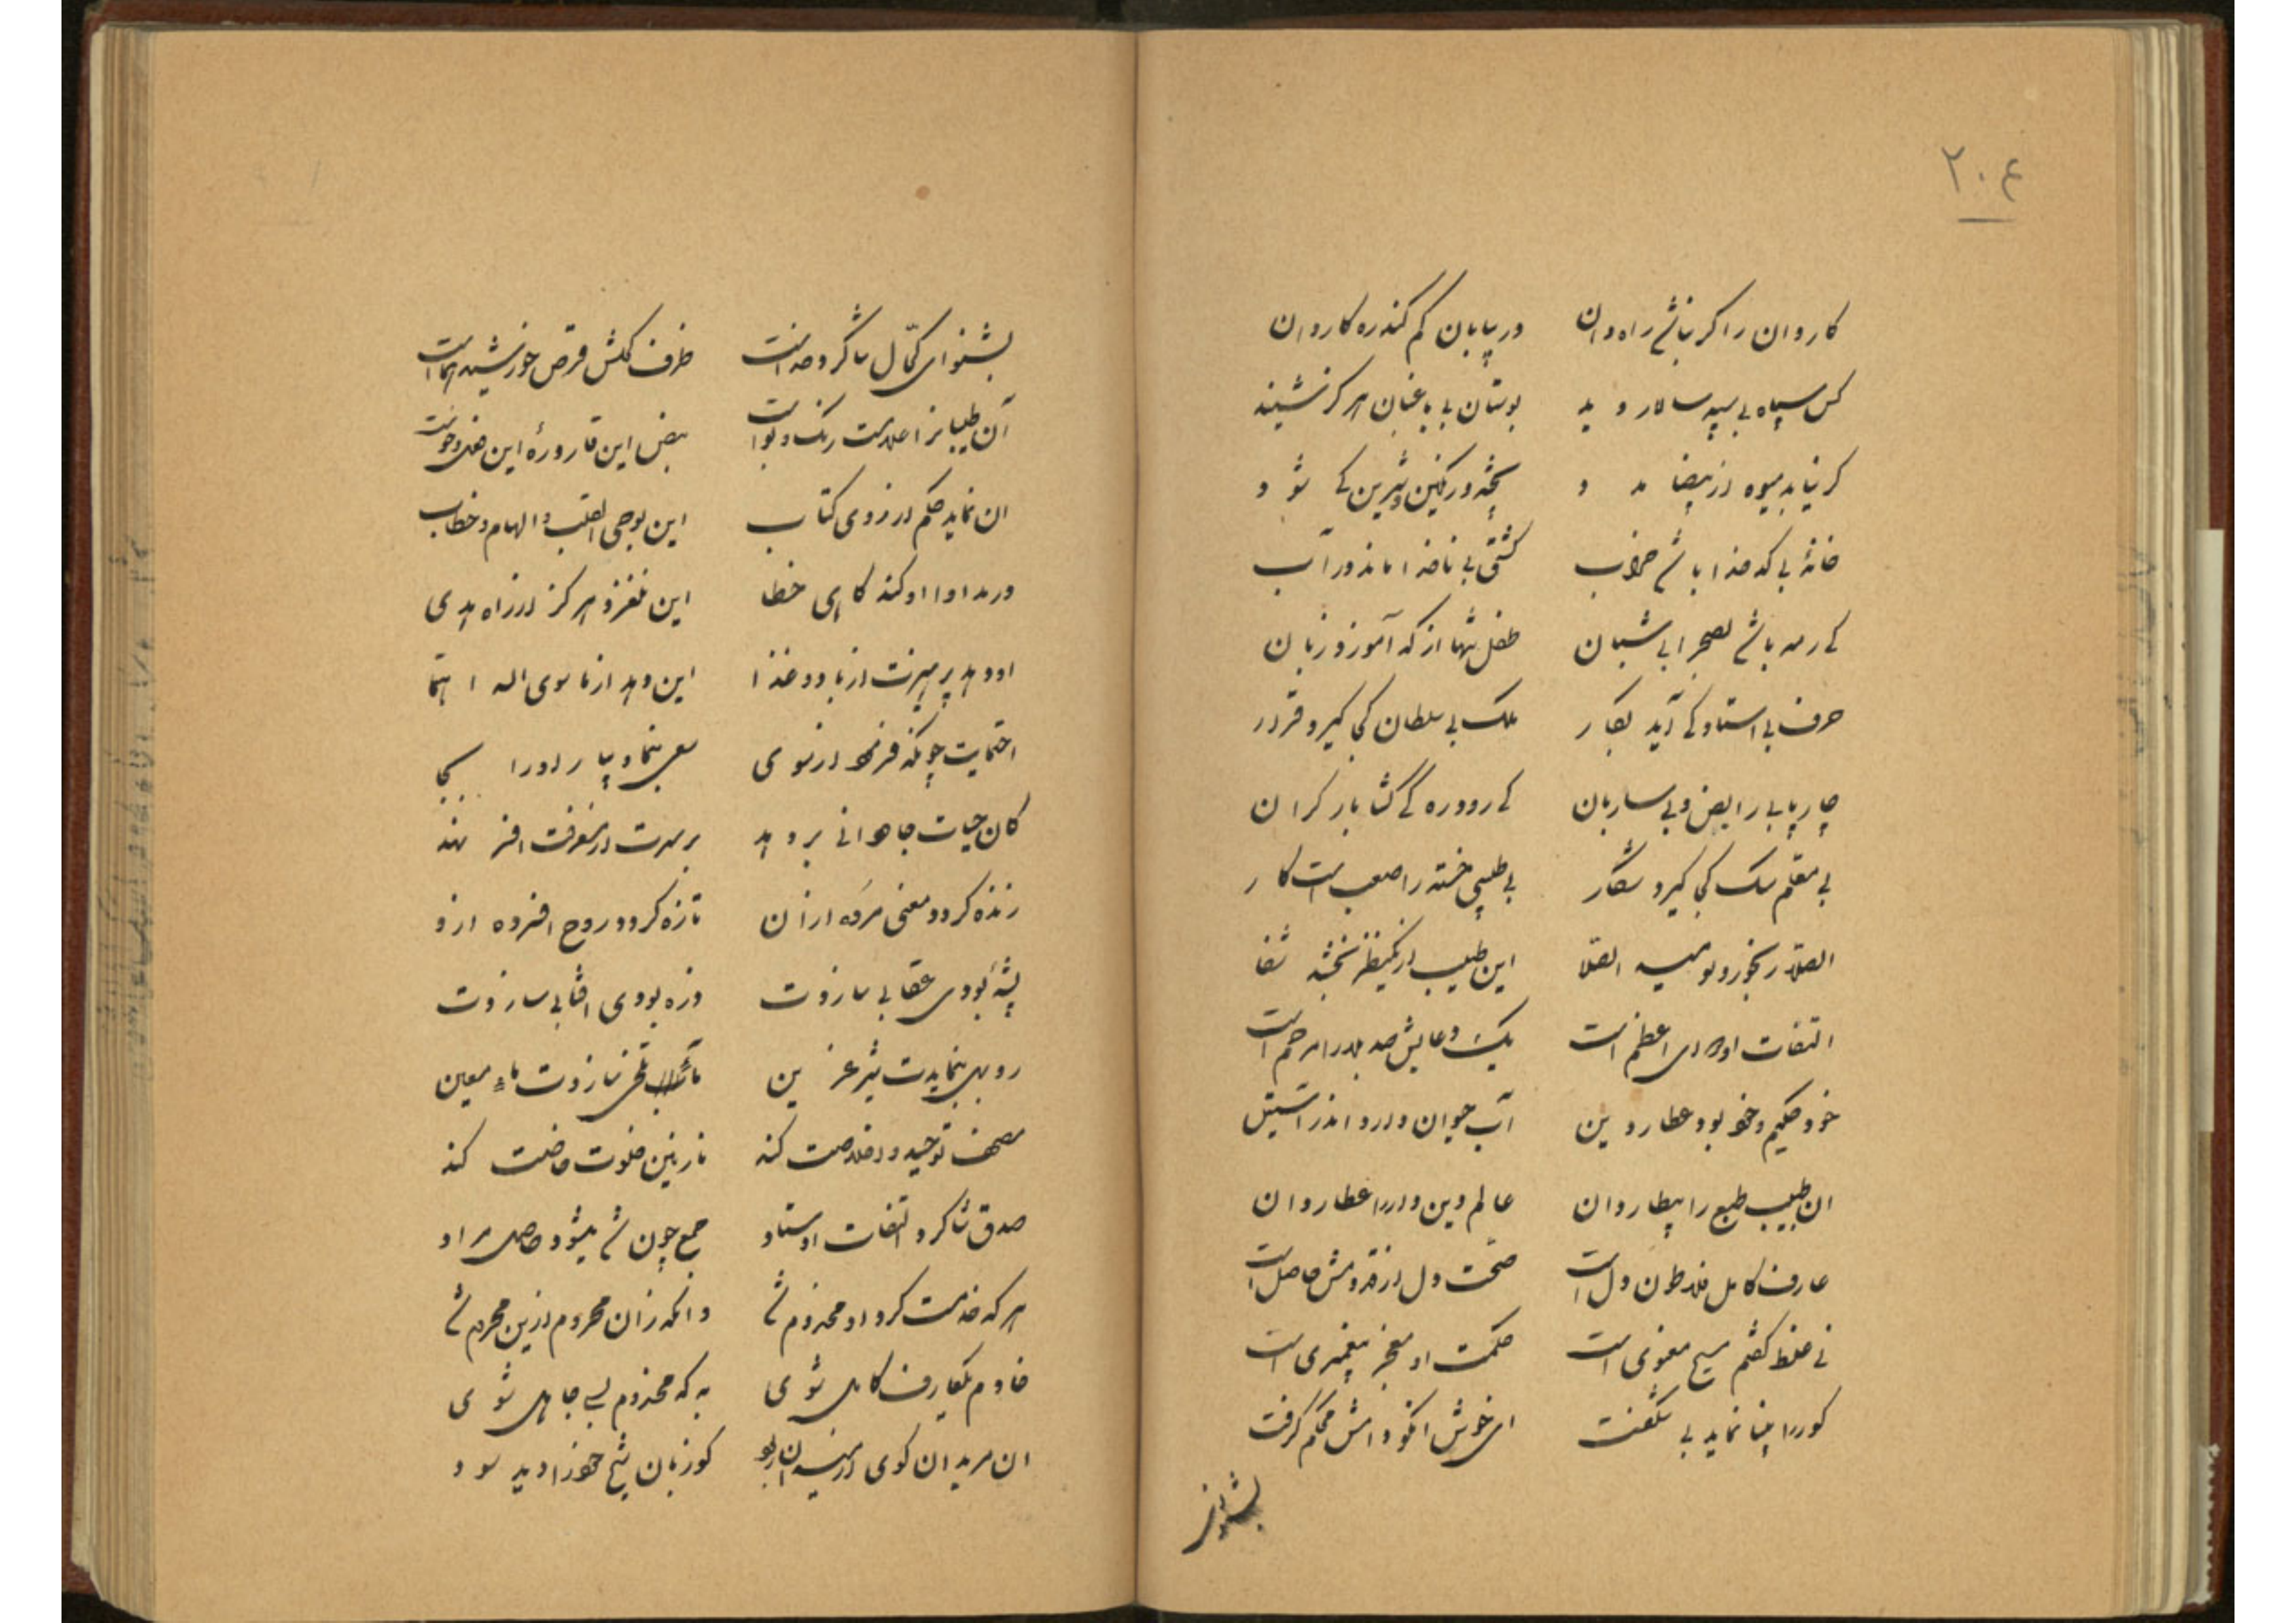 ۲۰۴
کاروان را گر نباشد راه‌دان در بیابان گم کند ره کاروان
کس سپاه بی سپهسالار دید بوستان بی باغبان هرگز نشنید
گر نیابد میوه از بیضا مدد پخته و رنگین و شیرین کی شود
خانهٔ بی کدخدا باشد خراب کشتی بی ناخدا ماند در آب
کی رمه باشد بصحرا بی شبان طفل تنها از که آموزد زبان
حرف بی استاد کی آید بکار ملک بی سلطان کجا گیرد قرار
چارپا بی رایض و بی ساربان کی رود ره کی کشد بار گران
بی معلم سگ کجا گیرد شکار بی طبیبی خسته را صعب است کار
الصلا رنجور و نومید الصلا این طبیب از یک نظر بخشد شفا
التفات او دوای اعظم است یک دعایش صد هزاران مرهم است
خود حکیم و خود بود عطار دین آب حیوان دارد اندر آستین
ان طبیب طبع را بیطار دان عالم دین دار را عطار دان
عارف کامل فلاطون دل است صحت دل از قدومش حاصل است
نی غلط گفتم مسیح معنوی است حکمت او معجز پیغمبری است
کور را بینا نماید بی شگفت ای خوش آنکو دامنش محکم گرفت
بشنو از
بشنو ای کمال شاگرد خداست ظرف کحلش قرص خورشید سماست
آن طبیبانرا علامت رنگ و بو است نبض این قاروره این های و هو است
ان نماید حکم از روی کتاب این بوحی القلب و الهام و خطاب
در مداوا او کند گاهی خطا این نلغزد هرگز از راه هدی
او دهد پرهیزت از باد و غذا این دهد از ما سوی الله احتما
احتمایت چونکه فرمود از سوی سعی بنما و بیار او را بجا
کان حیات جاودانی بر دهد بر سرت از معرفت افسر نهد
زنده گردد معنی مرده ازان تازه گردد روح افسرده ازو
پشه بودی عقابی سازدت ذره بودی افتابی سازدت
روبهی بنمایدت شیر عرین آب تلخی سازدت ماء معین
مصحف توحید و اخلاصت کند نازنین خلوت خاصت کند
صدق شاگرد و التفات اوستاد جمع چون شد میشود حاصل مراد
هر که خدمت کرد او مخدوم شد وانکه زان محروم ازین محروم شد
خادم یک عارف کامل شوی به که مخدوم بسی جاهل شوی
ان مرید ان گوی از میدان ربود کو زبان شیخ خود را دید سود